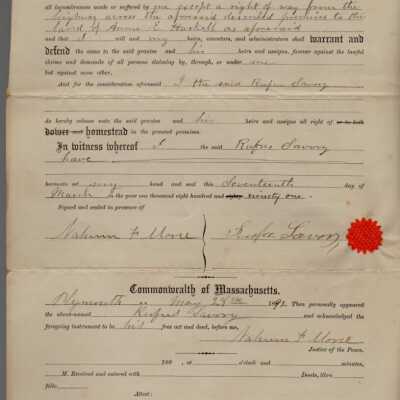 all incumbrances made or suffered by me except a right of way from the
highway across the aforesaid described premises to the
land of Annie E. Haskell as aforesaid
and that I will and my heirs, executors, and administrators shall warrant and
defend the same to the said grantee and his heirs and assigns, forever against the lawful
claims and demands of all persons claiming by, through, or under me
but against none other.
And for the consideration aforesaid I the said Rufus Savory
do hereby release unto the said grantee and his heirs and assigns all right of or to both
dower and homestead in the granted premises.
In witness whereof I the said Rufus Savory
have
hereunto set my hand and seal this Seventeenth day of
March in the year one thousand eight hundred and eighty ninety one.
Signed and sealed in presence of
Nahum F Morse
Rufus Savory
Commonwealth of Massachusetts.
Plymouth ss May 28th 1891. Then personally appeared
the above-named Rufus Savory and acknowledged the
foregoing instrument to be his free act and deed, before me,
Nahum F Morse
Justice of the Peace.
188 , at o'clock and minutes,
M. Received and entered with Deeds, libro
folio
Attest: